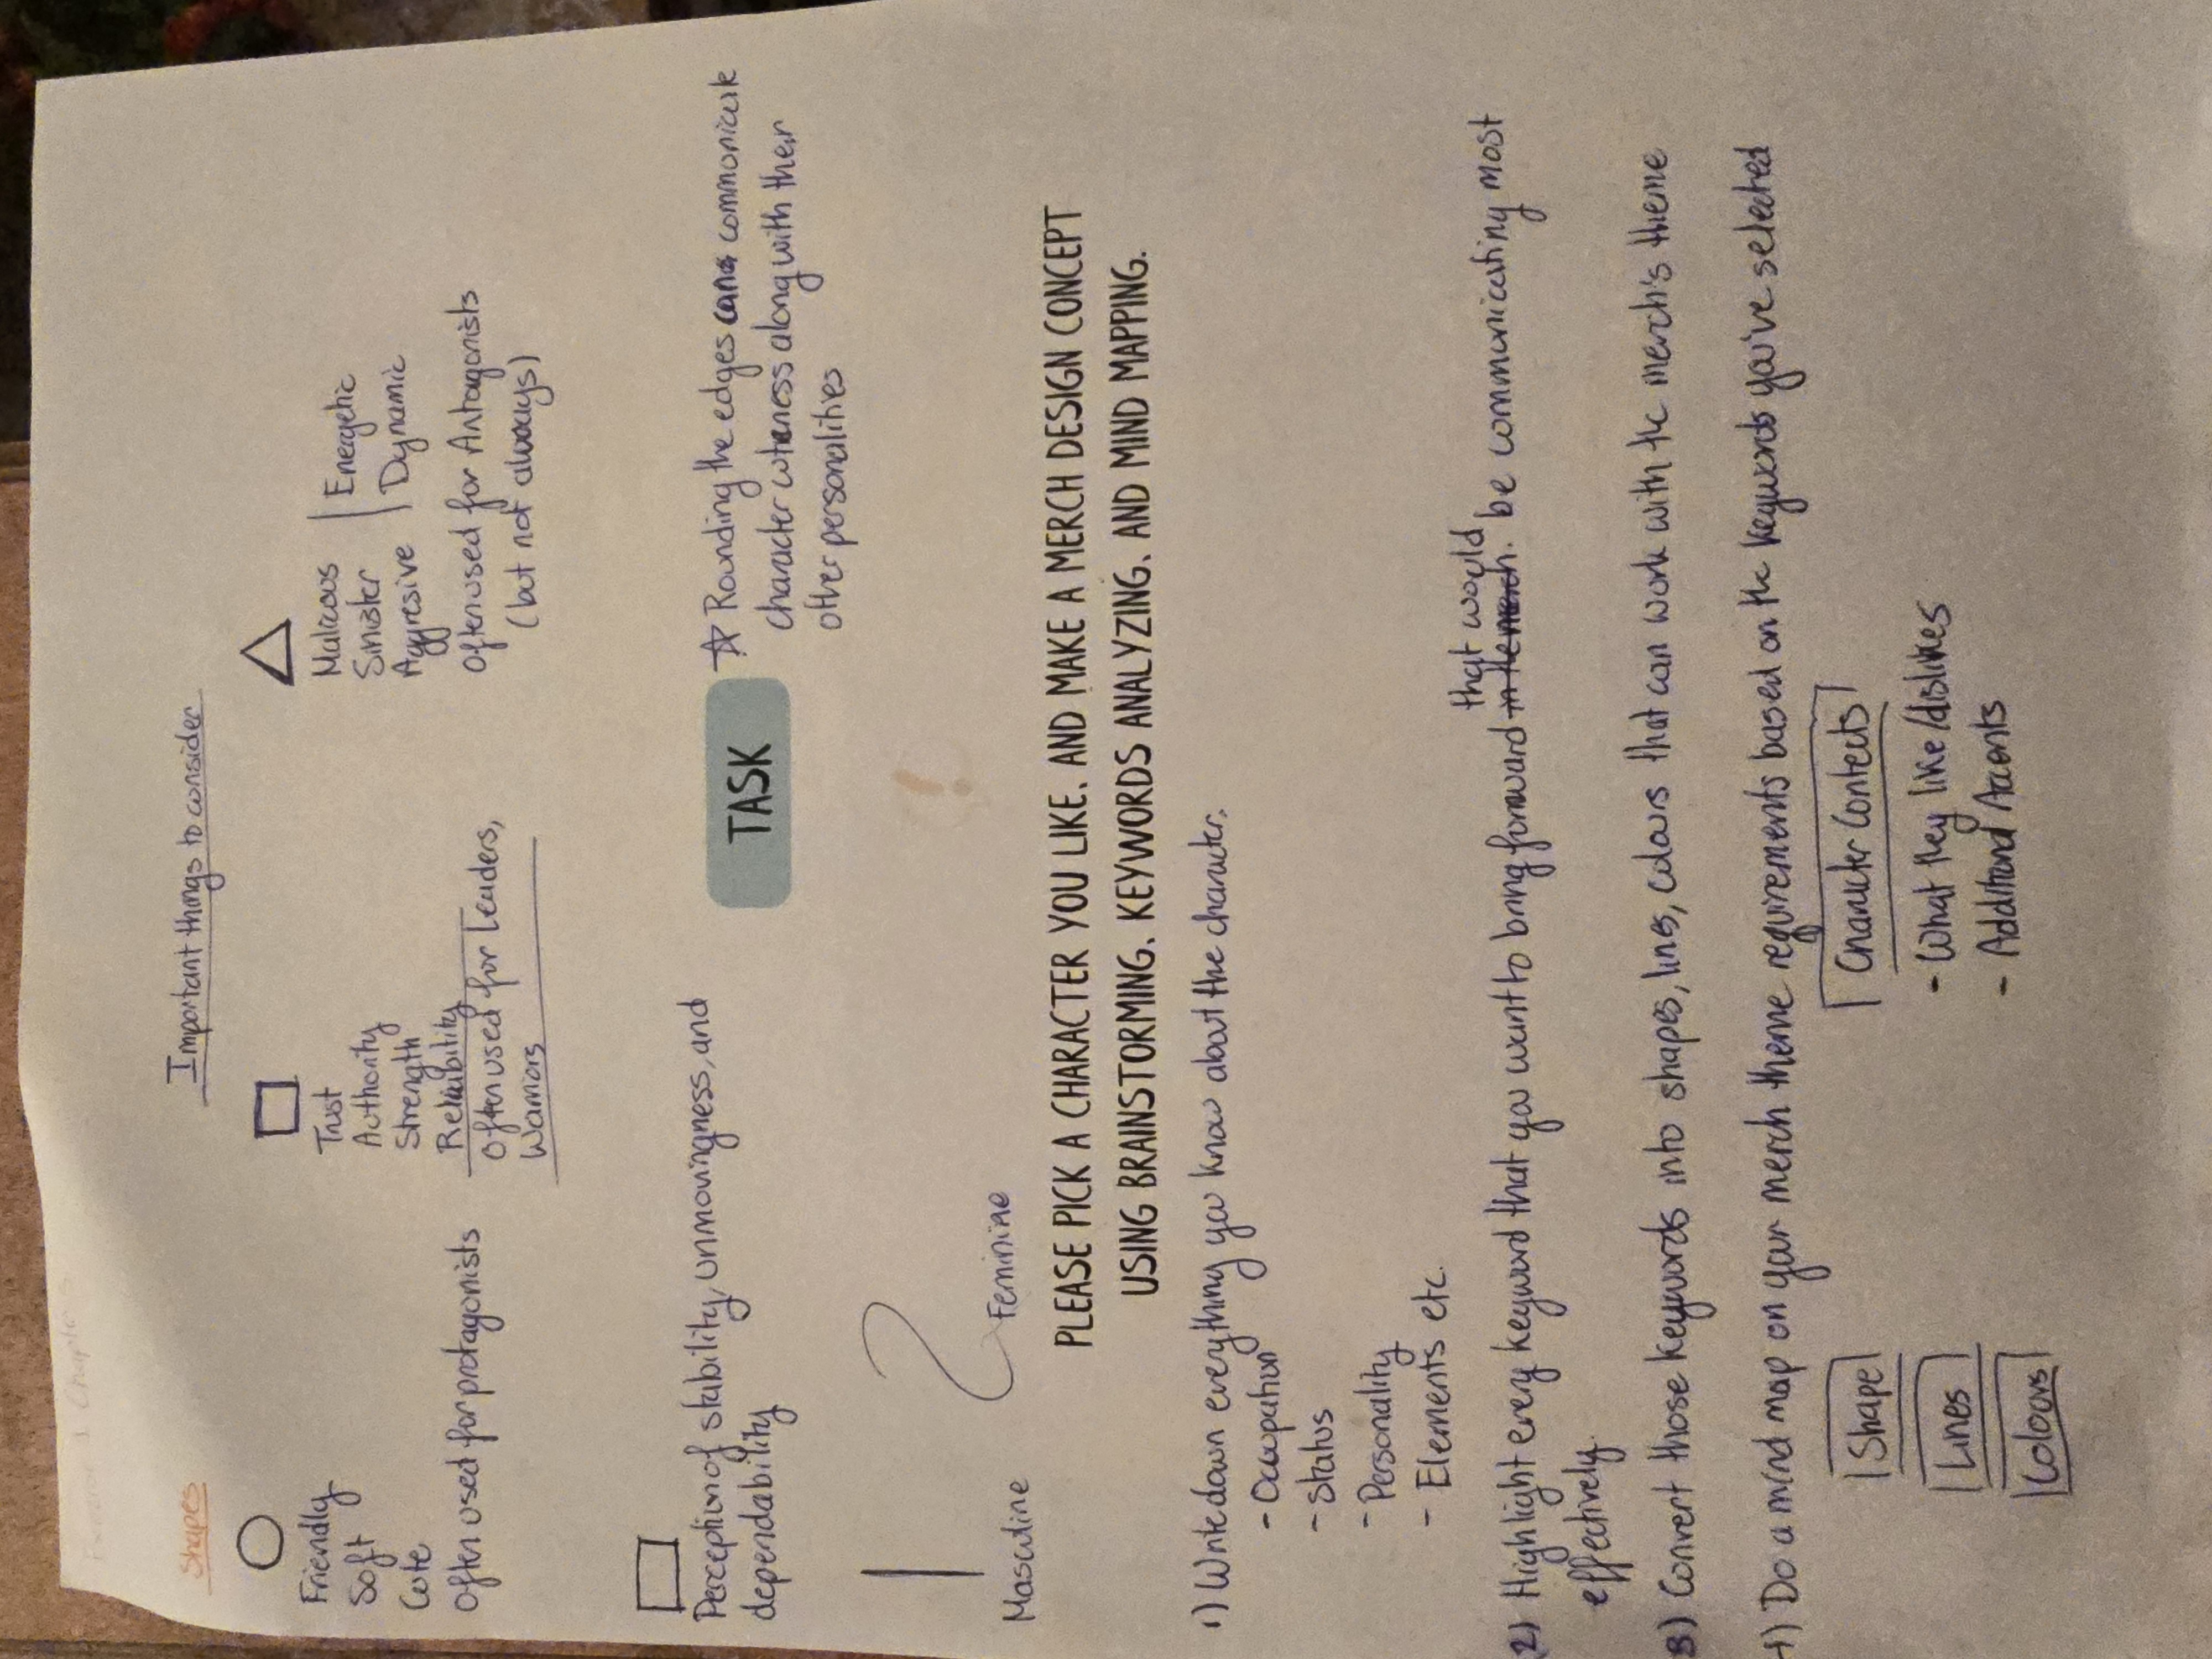 Important things to consider
Shapes
Friendly
Soft
Cute
Often used for protagonists
Trust
Authority
Strength
Reliability
Often used for Leaders,
Warriors
Malicous | Energetic
Sinister
Aggresive | Dynamic
Often used for Antagonists
(but not always)
Perception of stability, unmovingness, and
dependability
TASK
☆ Rounding the edges can communicate
character cuteness along with their
other personalities
Masculine
Feminine
PLEASE PICK A CHARACTER YOU LIKE. AND MAKE A MERCH DESIGN CONCEPT
USING BRAINSTORMING. KEYWORDS ANALYZING. AND MIND MAPPING.
1) Write down everything you know about the character.
- Occupation
- Status
- Personality
- Elements etc.
2) Highlight every keyword that you want to bring forward that would be communicating most
effectively.
3) Convert those keywords into shapes, lines, colours that can work with the merch's theme
4) Do a mind map on your merch theme requirements based on the keywords you've selected
Shape
Lines
Colours
Character Contects
- What they like/dislikes
- Additional